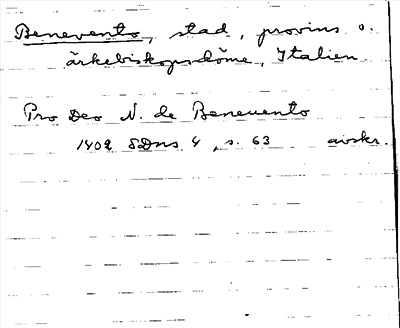 Benevento, stad, provins o.
ärkebiskopsdöme, Italien
Pro Deo N. de Benevento
1402 SDns 4, s. 63 avskr.